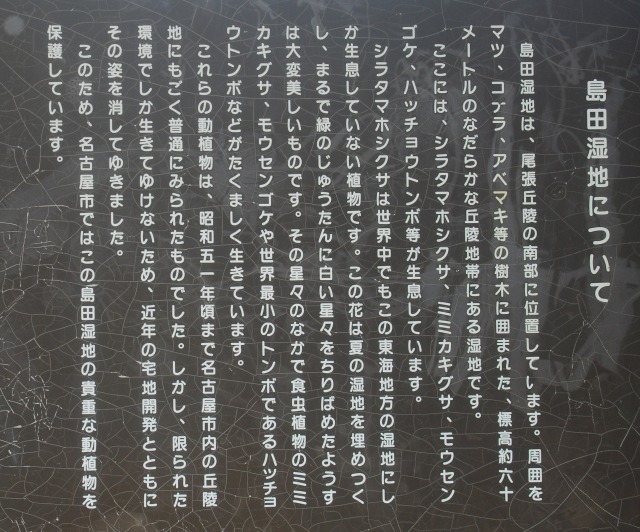 島田湿地について
島田湿地は、尾張丘陵の南部に位置しています。周囲を
マツ、コナラ、アベマキ等の樹木に囲まれた、標高約六十
メートルのなだらかな丘陵地帯にある湿地です。
ここには、シラタマホシクサ、ミミカキグサ、モウセン
ゴケ、ハッチョウトンボ等が生息しています。
シラタマホシクサは世界中でもこの東海地方の湿地にし
か生息していない植物です。この花は夏の湿地を埋めつく
し、まるで緑のじゅうたんに白い星々をちりばめたようす
は大変美しいものです。その星々のなかで食虫植物のミミ
カキグサ、モウセンゴケや世界最小のトンボであるハッチョ
ウトンボなどがたくましく生きています。
これらの動植物は、昭和五一年頃まで名古屋市内の丘陵
地にもごく普通にみられたものでした。しかし、限られた
環境でしか生きてゆけないため、近年の宅地開発とともに
その姿を消してゆきました。
このため、名古屋市ではこの島田湿地の貴重な動植物を
保護しています。